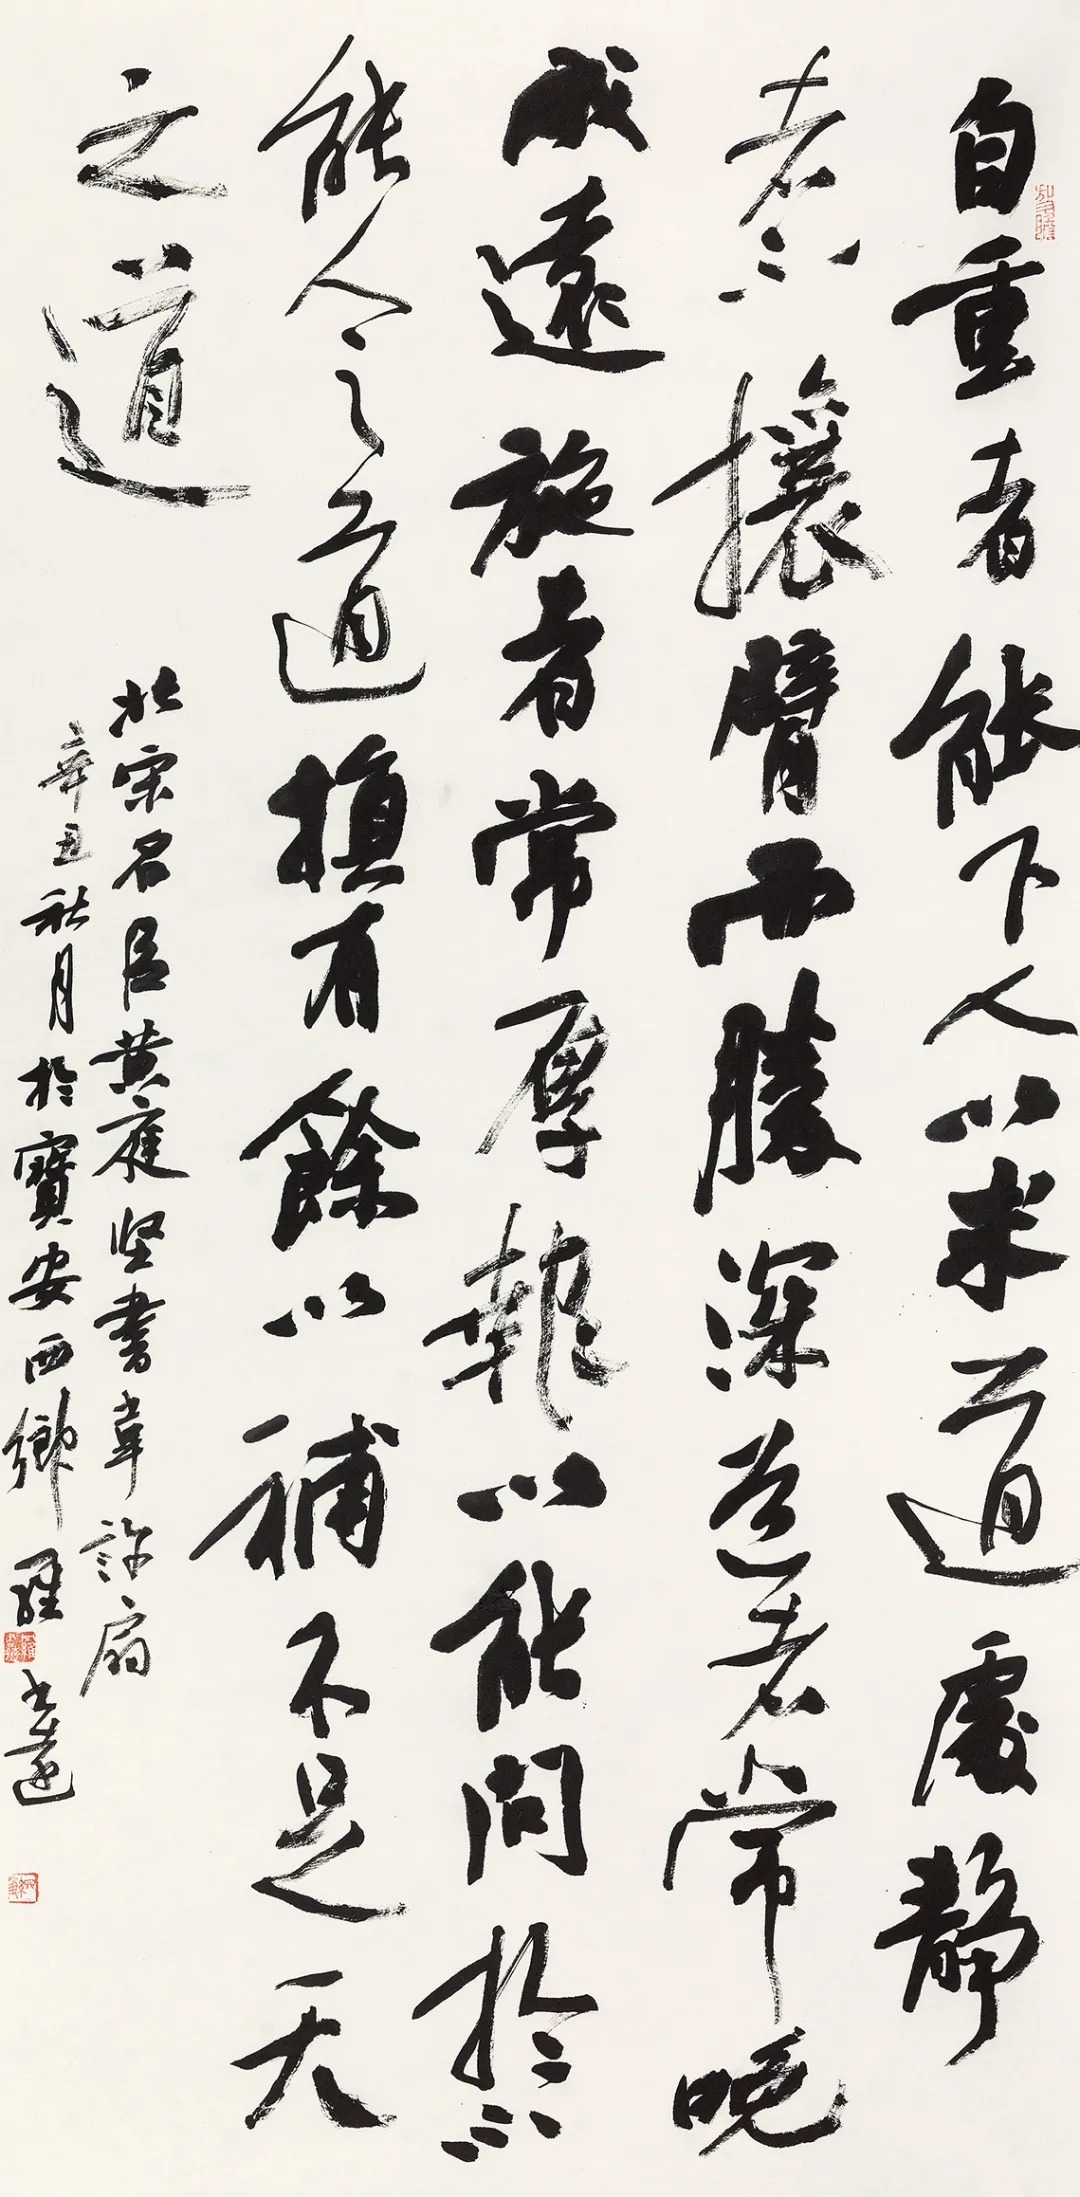 自重者能下人以求道處靜
者不攘臂而勝深造者常晚
成遠施者常厚報以能問於不
能人之道損有餘以補不足天
之道
北宋名臣黄庭坚書韋許扇
辛丑秋月於寶安西鄉羅